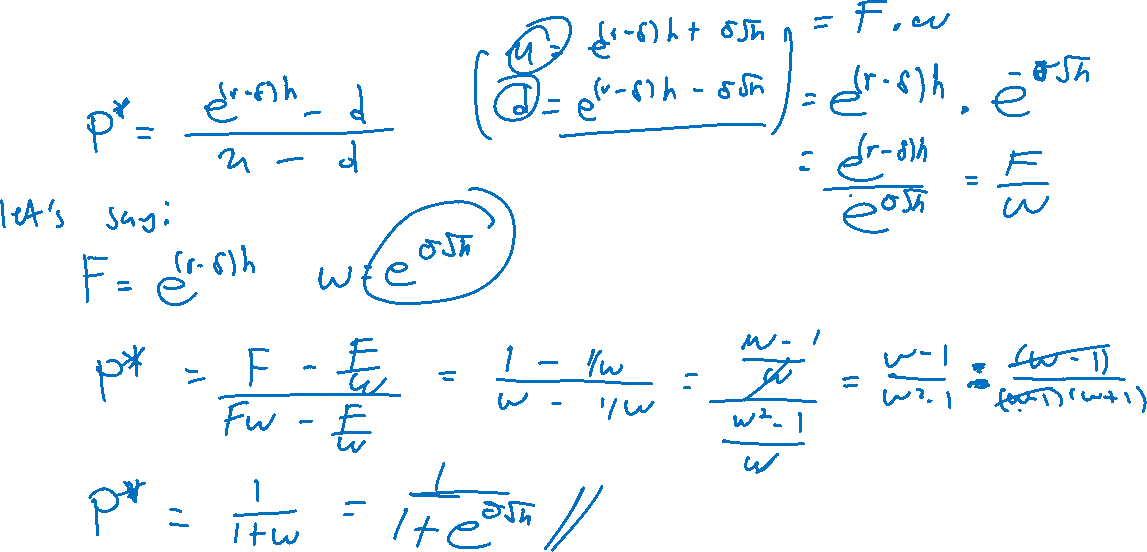 P* = (e^{(r-δ)h} - d) / (u - d)
( u = e^{(r-δ)h + σ√h} = F.w
d = e^{(r-δ)h - σ√h} ) = e^{(r-δ)h} . e^{-σ√h}
= e^{(r-δ)h} / e^{σ√h} = F/w
let's say:
F = e^{(r-δ)h} w = e^{σ√h}
P* = (F - F/w) / (Fw - F/w) = (1 - 1/w) / (w - 1/w) = ((w-1)/w) / ((w²-1)/w) = (w-1) / (w²-1) = (w-1) / ((w-1)(w+1))
P* = 1/(1+w) = 1/(1+e^{σ√h}) //